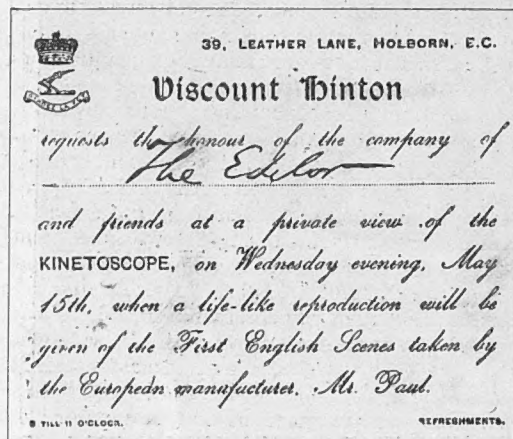 39, LEATHER LANE, HOLBORN, E.C.
Viscount Hinton
requests the honour of the company of
The Editor
and friends at a private view of the
KINETOSCOPE, on Wednesday evening, May
15th, when a life-like reproduction will be
given of the First English Scenes taken by
the European manufacturer, Mr. Paul.
TILL 11 O'CLOCK. REFRESHMENTS.